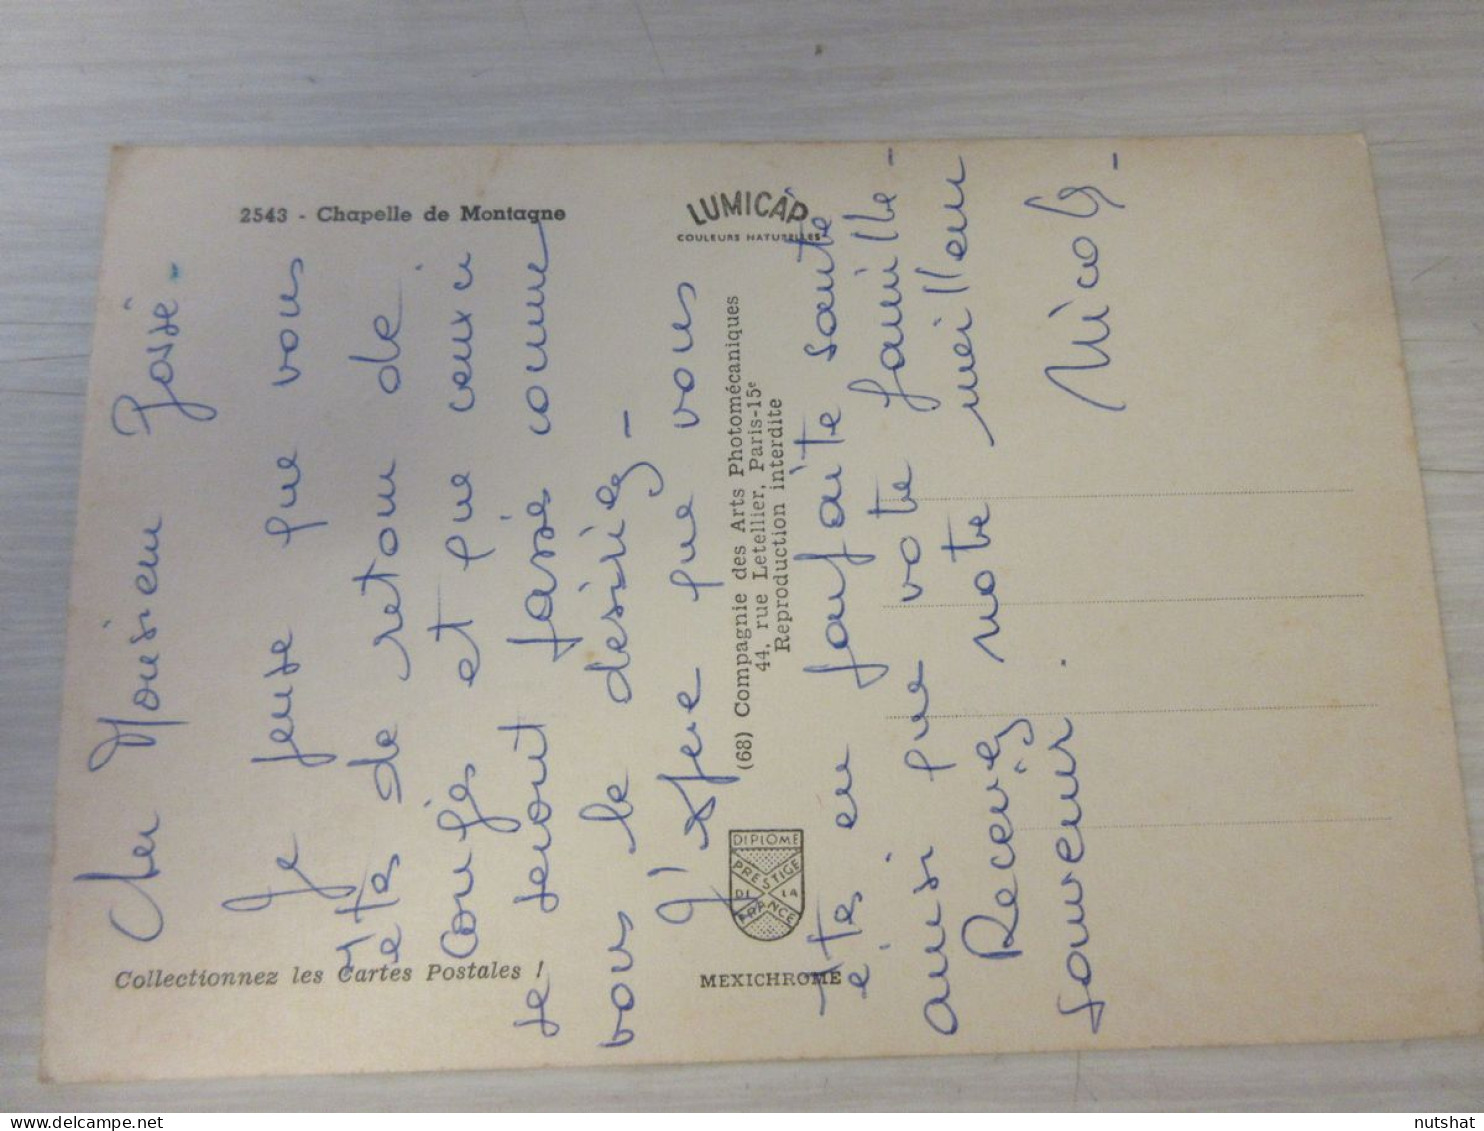 2543 - Chapelle de Montagne
LUMICAP
COULEURS NATURELLES
(68) Compagnie des Arts Photomécaniques
44, rue Letellier, Paris-15e
Reproduction interdite
DIPLOME
PRESTIGE
DE LA
FRANCE
MEXICHROME
Collectionnez les Cartes Postales !
Cher Monsieur
Je pense que vous
êtes de retour de
congés et que ceux ci
se seront passé comme
vous le desiriez -
J'espère que vous
êtes en parfaite santé
ainsi que votre famille -
Recevez notre meilleur
souvenir.
Nicole -
nutshat